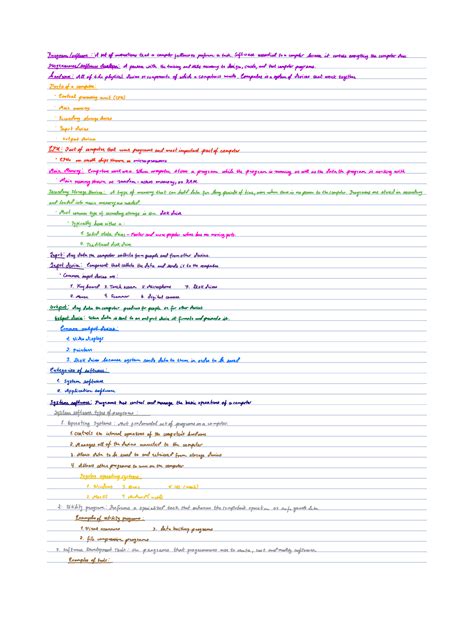 Program/software: A set of instructions that a computer follows to perform a task. Software essential to a computer because it controls everything the computer does
Programmer/software developer: A person with the training and skills necessary to design, create, and test computer programs.
Hardware: All of the physical devices or components of which a computer is made. Computer is a system of devices that work together
Parts of a computer
· Central processing unit (CPU)
· Main memory
· Secondary storage devices
· Input devices
output devices
CPU: Part of computer that runs programs and most important part of computer
· CPUs on small chips known as microprocessors
Main Memory: Computer stores a program while the program is running as well as the data the program is working with
Main memory known as random-access memory, or RAM
Secondary Storage Devices: A type of memory that can hold data for long periods of time, even when there is no power to the computer. Programs are stored in secondary
and loaded into main memory as needed
· Most common type of secondary storage is the disk drive
· Typically have either a:
1. Solid state drive - Faster and more popular when has no moving parts.
2. Traditional disk drive
Input: Any data the computer collects from people and from other devices
Input device: Component that collects the data and sends it to the computer
· Common input devices are:
1. Keyboard 3. Touch screen 5. Microphone 7. Disk drives
2. Mouse 4. Scanner 6. digital camera
Output: Any data the computer produces for people or for other devices
Output device: When data is sent to an output device it formats and presents it.
Common output devices:
1. Video displays
2. printers
3. Disk drives because system sends data to them in order to be saved
Categories of software:
1. System software
2. Application software
System software: Programs that control and manage the basic operations of a computer
System software types of programs:
1. Operating Systems: Most fundamental set of programs on a computer
1. Controls the internal operations of the computer's hardware
2. Manages all of the devices connected to the computer
3. Allows data to be saved to and retrieved from storage devices
4. Allows other programs to run on the computer
Popular operating systems:
1. Windows
2. MacOS
2. Utility program: Performs a specialized task that enhances the computer's operation or safeguards data
Examples of utility programs:
1. Virus scanners 3. data backup programs
2. file compression programs
3. Software Development Tools: the programs that programmers use to create, test and modify software.
Examples of tools: